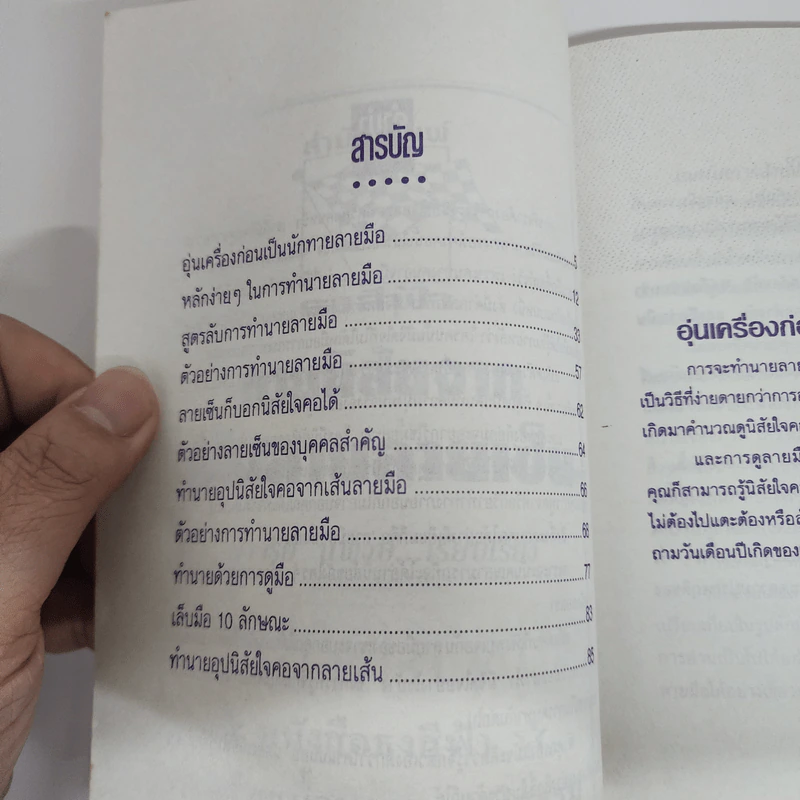 สารบัญ
อุ่นเครื่องก่อนเป็นนักทายลายมือ 5
หลักง่ายๆ ในการทำนายลายมือ 12
สูตรลับการทำนายลายมือ 33
ตัวอย่างการทำนายลายมือ 57
ลายเซ็นก็บอกนิสัยใจคอได้ 62
ตัวอย่างลายเซ็นของบุคคลสำคัญ 64
ทำนายอุปนิสัยใจคอจากเส้นลายมือ 66
ตัวอย่างการทำนายลายมือ 68
ทำนายด้วยการดูมือ 77
เล็บมือ 10 ลักษณะ 83
ทำนายอุปนิสัยใจคอจากลายเส้น 85
อุ่นเครื่องก่อ
การจะทำนายลาย
เป็นวิธีที่ง่ายดายกว่าการ
เกิดมาคำนวณดูนิสัยใจค
และการดูลายมื
คุณก็สามารถรู้นิสัยใจค
ไม่ต้องไปแตะต้องหรือ
ถามวันเดือนปีเกิดของ